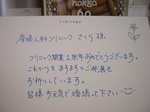 産婦人科クリニック さくら 様
クリニック開業1周年おめでとうございます。
これからもますますのご発展を
お祈りしています。
皆様お元気で頑張って下さい